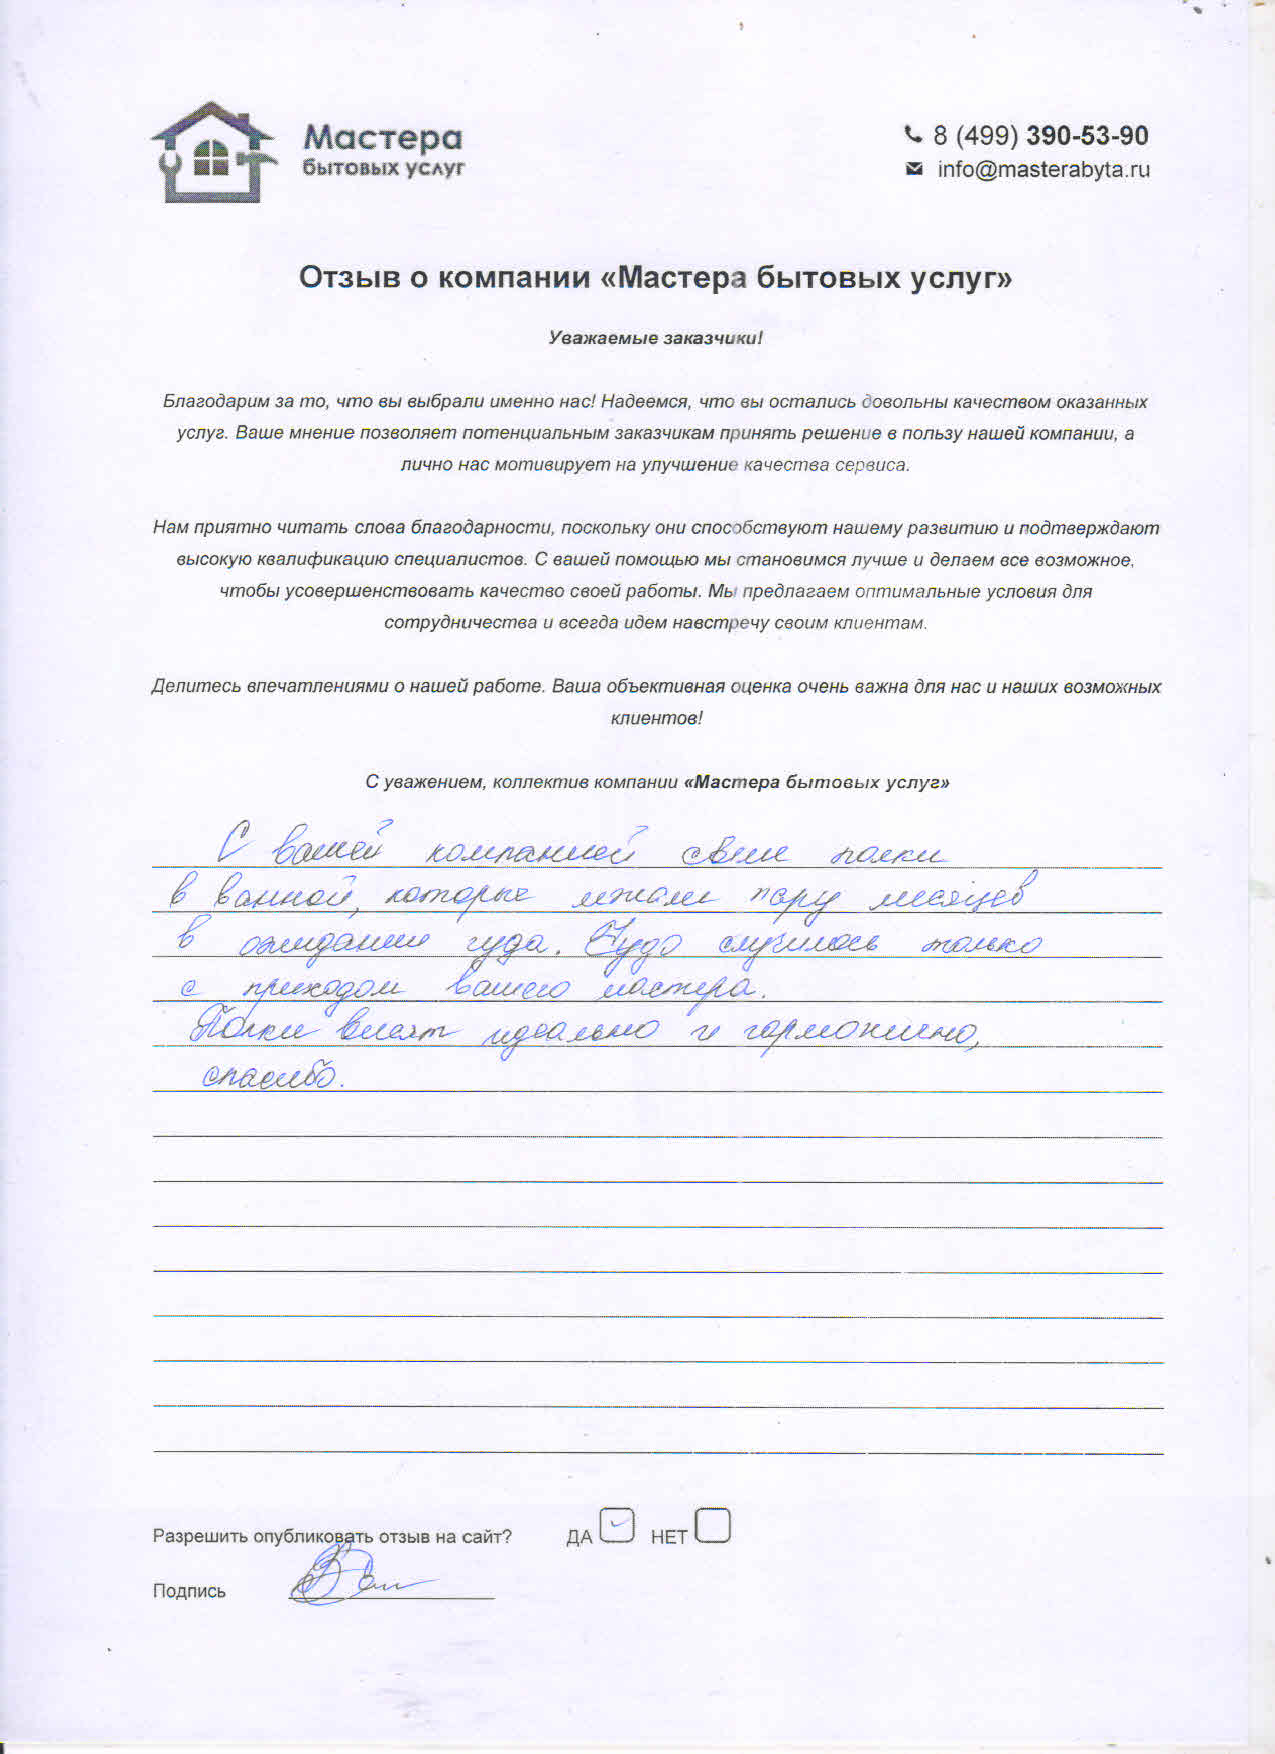 Мастера
бытовых услуг
8 (499) 390-53-90
info@masterabyta.ru
Отзыв о компании «Мастера бытовых услуг»
Уважаемые заказчики!
Благодарим за то, что вы выбрали именно нас! Надеемся, что вы остались довольны качеством оказанных
услуг. Ваше мнение позволяет потенциальным заказчикам принять решение в пользу нашей компании, а
лично нас мотивирует на улучшение качества сервиса.
Нам приятно читать слова благодарности, поскольку они способствуют нашему развитию и подтверждают
высокую квалификацию специалистов. С вашей помощью мы становимся лучше и делаем все возможное,
чтобы усовершенствовать качество своей работы. Мы предлагаем оптимальные условия для
сотрудничества и всегда идем навстречу своим клиентам.
Делитесь впечатлениями о нашей работе. Ваша объективная оценка очень важна для нас и наших возможных
клиентов!
С уважением, коллектив компании «Мастера бытовых услуг»
С вашей компанией полки
в ванной, которые лежали пару месяцев
в ожидании чуда. Чудо случилось только
с приходом вашего мастера.
Полки висят идеально и гармонично,
спасибо.
Разрешить опубликовать отзыв на сайт? ДА НЕТ
Подпись